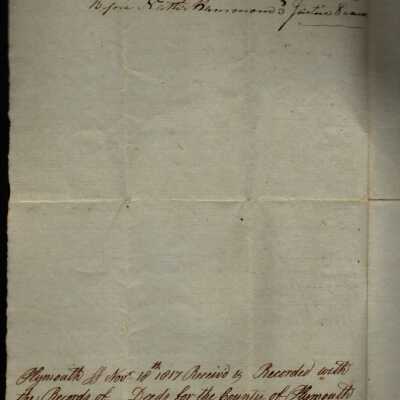 Before Nath.l Hammond Justice Peace
Plymouth ss Nov.r 18th 1817 Received & Recorded with
the Records of Deeds for the County of Plymouth